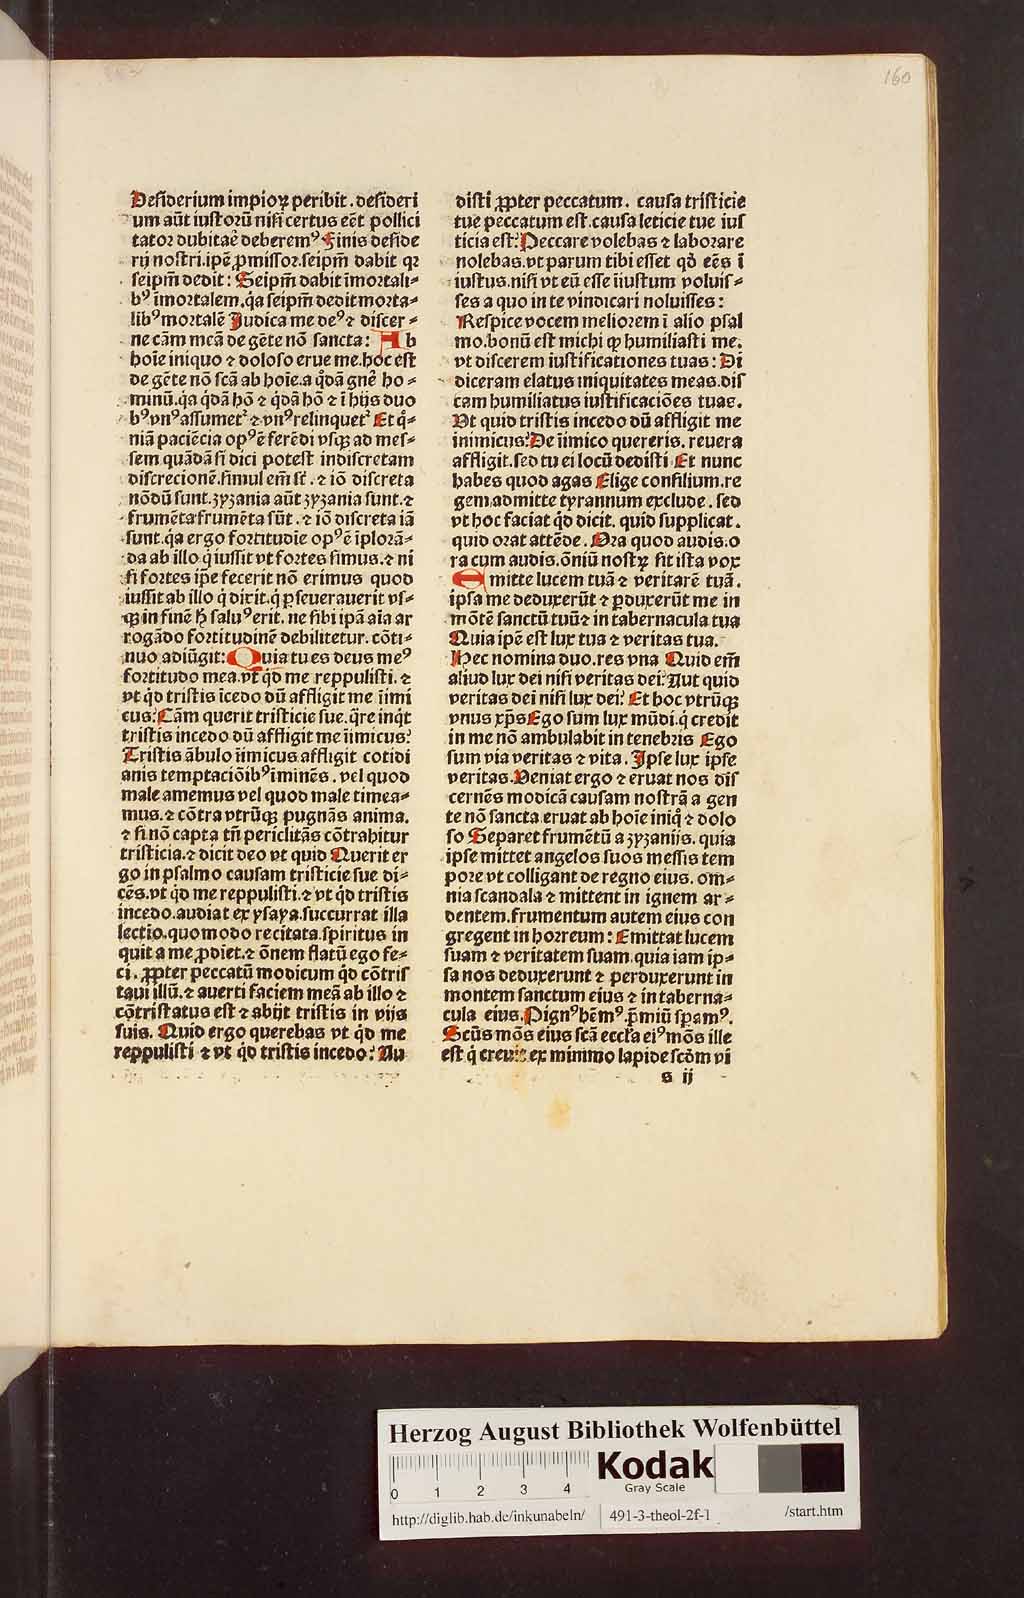 160
Desiderium impioꝝ peribit. desideri
um aūt iustorū nisi certus eēt pollici
tator dubitaē deberemꝰ Finis deside
rij nostri. ipē ꝓmissor. seipm̄ dabit qꝛ
seipm̄ dedit: Seipm̄ dabit īmortali-
bꝰ īmortalem. q̄a seipm̄ dedit morta-
libꝰ mortalē Judica me deꝰ ⁊ discer-
ne cām meā de gēte nō sancta: Ab
hoīe iniquo ⁊ doloso erue me. hoc est
de gēte nō scā ab hoīe. a q̄dā gn̄e ho-
minū. q̄a q̄dā hō ⁊ q̄dā hō ⁊ ī hijs duo
bꝰ vnꝰ assumetᷣ ⁊ vnꝰ relinquetᷣ Et q̄-
niā paciēcia opꝰ ē ferēdi vsqꝫ ad mes-
sem quādā si dici potest indiscretam
discrecionē. simul em̄ st̄. ⁊ iō discreta
nōdū sunt. zyzania aūt zyzania sunt. ⁊
frumēta frumēta sūt. ⁊ iō discreta iā
sunt. q̄a ergo fortitudīe opꝰ ē īplorā-
da ab illo q̄ iussit vt fortes simus. ⁊ ni
si fortes ip̄e fecerit nō erimus quod
iussit ab illo q̄ dixit. q̄ ꝑseuerauerit vs-
qꝫ in finē hͥ saluꝰ erit. ne sibi ipā aīa ar
rogādo fortitudinē debilitetur. cōti-
nuo adiūgit: Quia tu es deus meꝰ
fortitudo mea. vt q̄d me reppulisti. ⁊
vt q̄d tristis īcedo dū affligit me īimi
cus? Cām querit tristicie sue. q̄re inq̄t
tristis incedo dū affligit me īimicus?
Tristis ābulo īimicus affligit cotidi
anis temptaciōibꝰ īminēs. vel quod
male amemus vel quod male timea-
mus. ⁊ cōtra vtrūqꝫ pugnās anima.
⁊ si nō capta tn̄ periclitās cōtrahitur
tristicia. ⁊ dicit deo vt quid Querit er
go in psalmo causam tristicie sue di-
cēs. vt q̄d me reppulisti. ⁊ vt q̄d tristis
incedo. audiat ex ysaya. succurrat illa
lectio. quomodo recitata. spiritus in
quit a me ꝓdiet. ⁊ ōnem flatū ego fe-
ci. ꝓpter peccatū modicum q̄d cōtris
taui illū. ⁊ auerti faciem meā ab illo ⁊
cōtristatus est ⁊ abijt tristis in vijs
suis. Quid ergo querebas vt q̄d me
reppulisti ⁊ vt q̄d tristis incedo? Au
disti ꝓpter peccatum. causa tristicie
tue peccatum est. causa leticie tue ius
ticia est? Peccare volebas ⁊ laborare
nolebas. vt parum tibi esset qd̄ eēs ī
iustus. nisi vt eū esse īiustum voluis-
ses a quo in te vindicari noluisses:
Respice vocem meliorem ī alio psal
mo. bonū est michi qꝫ humiliasti me.
vt discerem iustificationes tuas: Di
diceram elatus iniquitates meas. dis
cam humiliatus iustificaciōes tuas.
Vt quid tristis incedo dū affligit me
inimicus? De īimico quereris. reuera
affligit. sed tu ei locū dedisti Et nunc
habes quod agas Elige consilium. re
gem admitte tyrannum exclude. sed
vt hoc faciat q̄d dicit. quid supplicat.
quid orat attēde. Ora quod audis. o
ra cum audis. ōniū nostꝝ sit ista vox
Emitte lucem tuā ⁊ veritatē tuā.
ipsa me deduxerūt ⁊ ꝑduxerūt me in
mōtē sanctū tuū ⁊ in tabernacula tua
Quia ipē est lux tua ⁊ veritas tua.
Hec nomina duo. res vna Quid em̄
aliud lux dei nisi veritas dei? Aut quid
veritas dei nisi lux dei? Et hoc vtrūqꝫ
vnus xp̄s Ego sum lux mūdi. q̄ credit
in me nō ambulabit in tenebris Ego
sum via veritas ⁊ vita. Ipse lux ipse
veritas. Veniat ergo ⁊ eruat nos dis
cernēs modicā causam nostrā a gen
te nō sancta eruat ab hoīe iniq̄ ⁊ dolo
so Separet frumētū a zyzanijs. quia
ipse mittet angelos suos messis tem
pore vt colligant de regno eius. om-
nia scandala ⁊ mittent in ignem ar-
dentem. frumentum autem eius con
gregent in horreum: Emittat lucem
suam ⁊ veritatem suam. quia iam ip-
sa nos deduxerunt ⁊ perduxerunt in
montem sanctum eius ⁊ in taberna-
cula eius. Pignꝰ hēmꝰ. p̄miū spamꝰ.
Scūs mōs eius scā eccl̄a eiꝰ mōs ille
est q̄ creuit ex minimo lapide scd̄m vi
s ij
Herzog August Bibliothek Wolfenbüttel
0 1 2 3 4
Kodak
Gray Scale
http://diglib.hab.de/inkunabeln/ 491-3-theol-2f-1 /start.htm